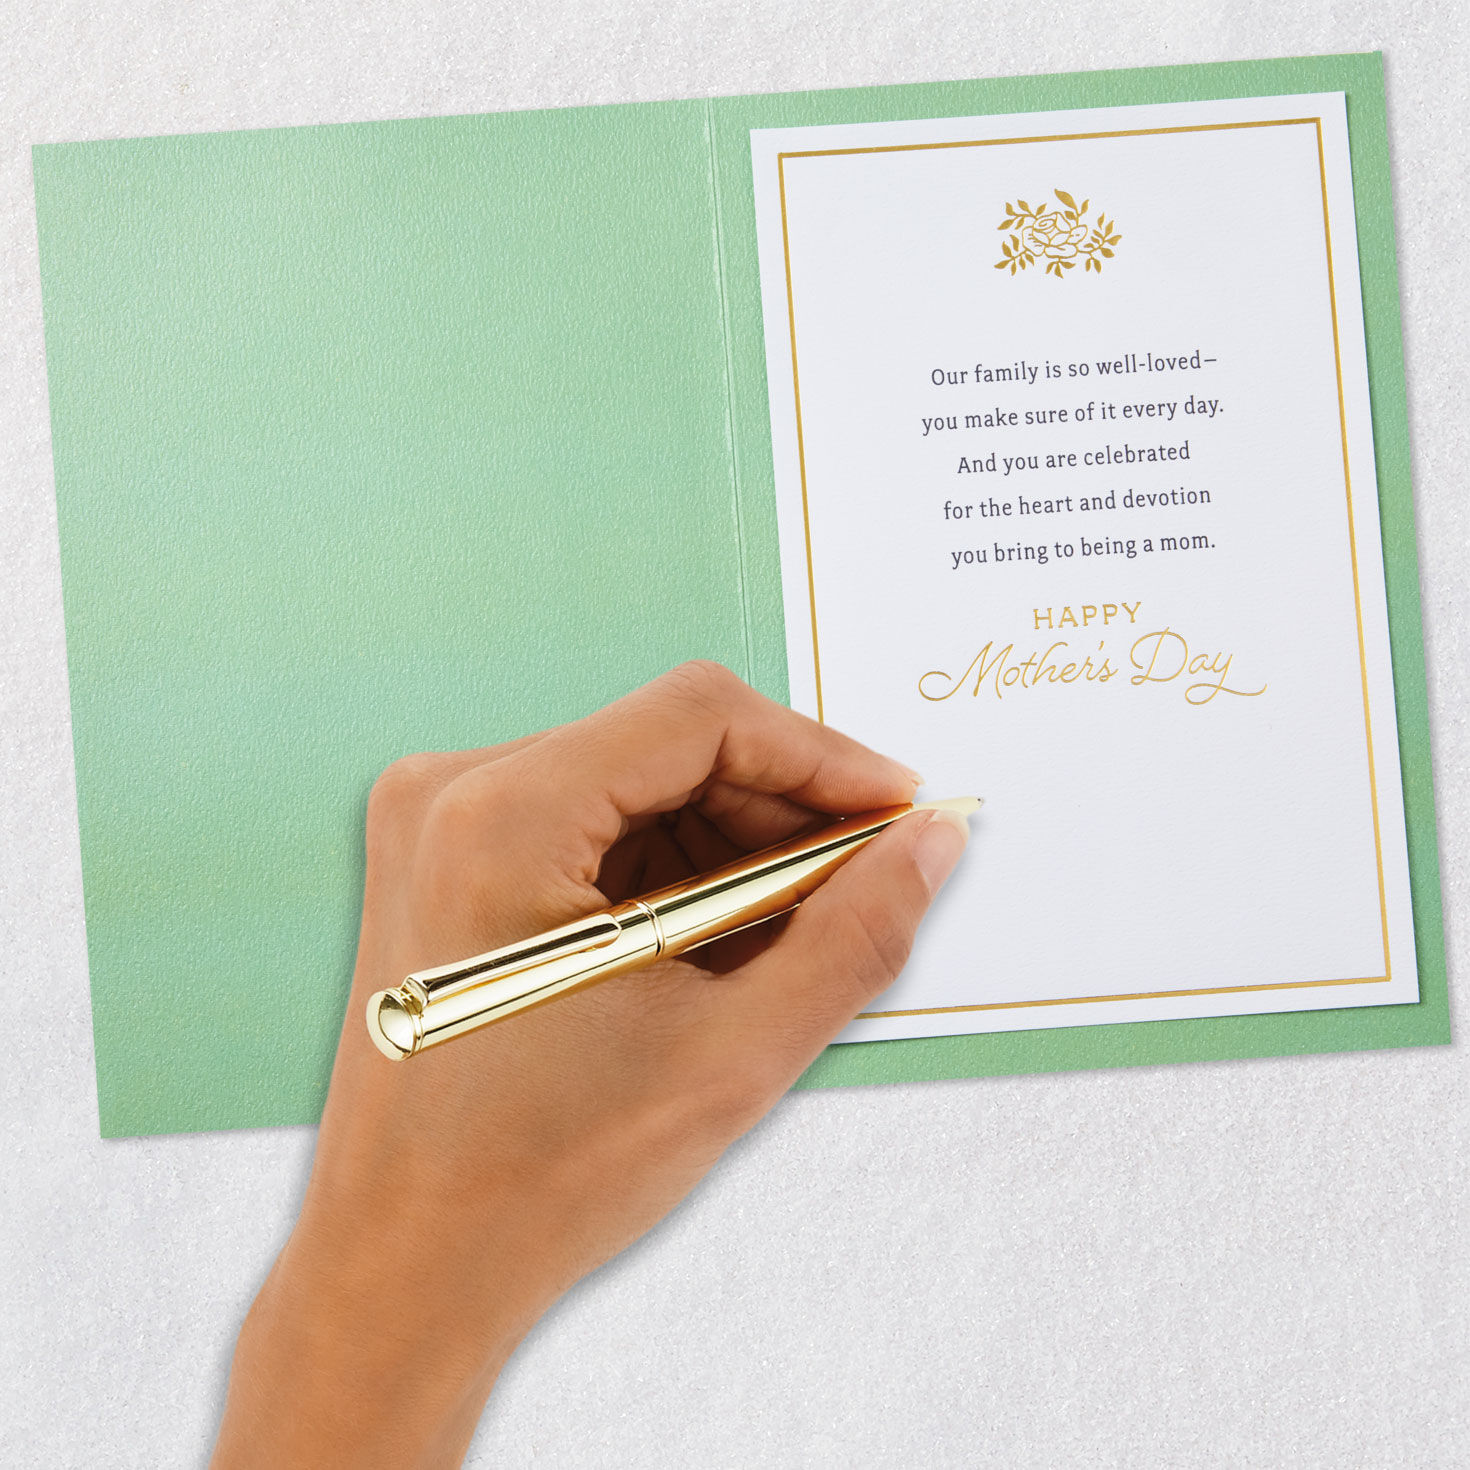 Our family is so well-loved—
you make sure of it every day.
And you are celebrated
for the heart and devotion
you bring to being a mom.
HAPPY
Mother's Day